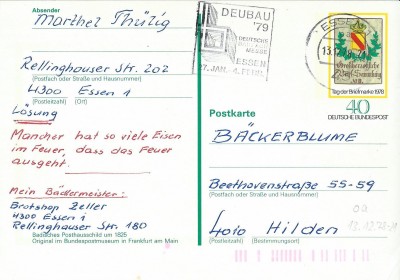 Absender
Marthel Thürig
Rellinghauser Str. 202
(Postfach oder Straße und Hausnummer)
4300 Essen 1
(Postleitzahl) (Ort)
Lösung
Mancher hat so viele Eisen
im Feuer, dass das Feuer
ausgeht.
Mein Bäckermeister:
Brotshop Zeller
4300 Essen 1
Rellinghauser Str. 180
Badisches Posthausschild um 1825
Original im Bundespostmuseum in Frankfurt am Main
DEUBAU
'79
DEUTSCHE
ESSEN
ESSEN
Großherzogliche
Tag der Briefmarke 1978
40
DEUTSCHE BUNDESPOST
Postkarte
BÄCKERBLUME
Beethovenstraße 55-59
(Postfach oder Straße und Hausnummer)
4010 Hilden
(Postleitzahl) (Bestimmungsort)